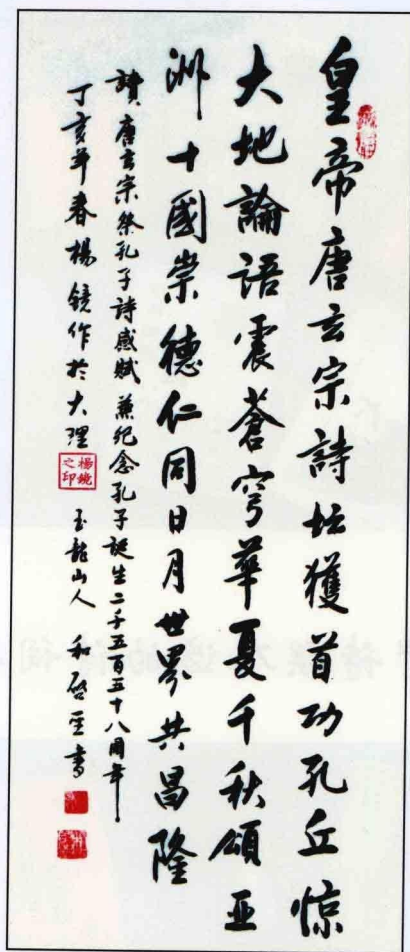 皇帝唐玄宗詩坛獲首功孔丘惊
大地論語震蒼穹華夏千秋頌亚
洲十國崇德仁同日月世界共昌隆
讀唐玄宗祭孔子詩感赋兼纪念孔子誕生二千五百五十八周年
丁亥年春楊鏡作於大理
楊鏡之印
玉龍山人和啓圣書